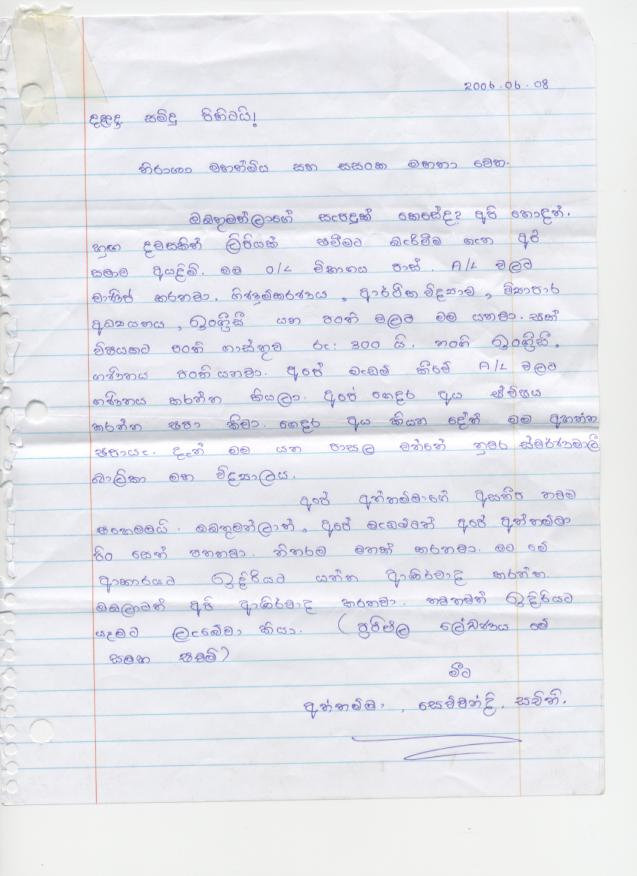 2006.06.08
දළදා සමිදු පිහිටයි!
නිරාශා මහත්මිය සහ සසංක මහතා වෙත.
ඔබතුමන්ලාගේ සැපදුක් කෙසේද? අපි හොඳින්.
හුඟ දවසකින් ලිපියක් එවීමට බැරිවීම ගැන අපි
සමාව අයදිමි. මම O/L විභාගය පාස්. A/L වලට
කරනවා. ගිණුම්කරණය, ආර්ථික විද්‍යාව, ව්‍යාපාර
අධ්‍යයනය, ඉංග්‍රීසි යන පංති වලට මම යනවා. එක්
විෂයකට පංති ගාස්තුව රු: 300 යි. තංගි ඉංග්‍රීසි,
ගණිතය පංතියනවා. අපේ මැඩම් කීවේ A/L වලට
ගණිතය කරන්න කියලා. අපේ ගෙදර අය
කරන්න එපා කිව්වා. ගෙදර අය කියන දේත් මම අහන්න
එපායැ. දැන් මම යන පාසල වන්නේ නුවර ස්වර්ණමාලි
බාලිකා මහ විද්‍යාලය.
අපේ අත්තම්මාගේ අසනීප තවම
එහෙමමයි. ඔබතුමන්ලාත්, අපේ මැඩම්ටත් අපේ අත්තම්මා
පිං සෙත් පතනවා. නිතරම මතක් කරනවා. මට මේ
ආකාරයට ඉදිරියට යන්න ආශිර්වාද කරන්න.
ඔබලාටත් අපි ආශිර්වාද කරනවා. තවතවත් ඉදිරියට
යෑමට ලැබේවා කියා. (ප්‍රතිඵල ලේඛණය මේ
සමඟ එවමි)
මීට
අත්තම්මා, සෙව්වන්දි, සචිනි.